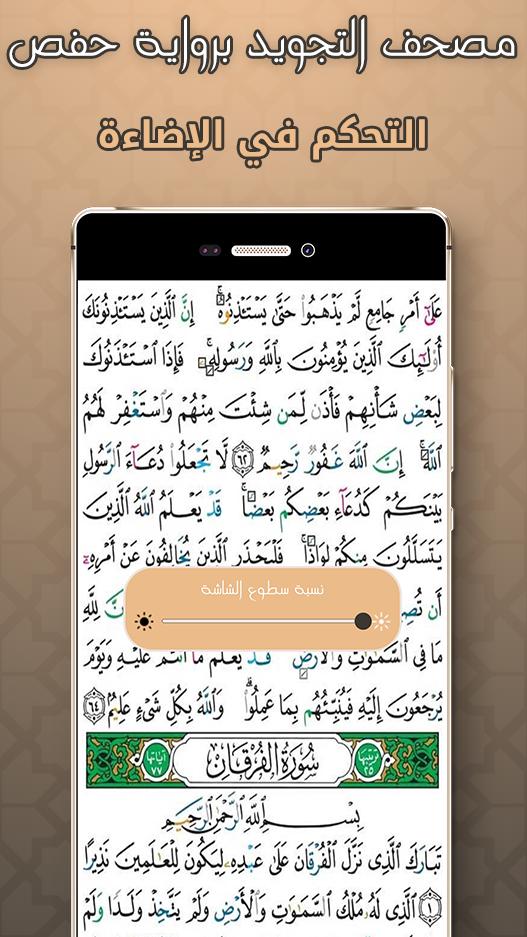 مصحف التجويد برواية حفص
التحكم في الإضاءة
عَلَىٰٓ أَمْرٍ جَامِعٍ لَّمْ يَذْهَبُوا۟ حَتَّىٰ يَسْتَـْٔذِنُوهُ ۚ إِنَّ ٱلَّذِينَ يَسْتَـْٔذِنُونَكَ
أُو۟لَـٰٓئِكَ ٱلَّذِينَ يُؤْمِنُونَ بِٱللَّهِ وَرَسُولِهِۦ ۚ فَإِذَا ٱسْتَـْٔذَنُوكَ
لِبَعْضِ شَأْنِهِمْ فَأْذَن لِّمَن شِئْتَ مِنْهُمْ وَٱسْتَغْفِرْ لَهُمُ
ٱللَّهَ ۚ إِنَّ ٱللَّهَ غَفُورٌ رَّحِيمٌ ٦٢ لَّا تَجْعَلُوا۟ دُعَآءَ ٱلرَّسُولِ
بَيْنَكُمْ كَدُعَآءِ بَعْضِكُم بَعْضًا ۚ قَدْ يَعْلَمُ ٱللَّهُ ٱلَّذِينَ
يَتَسَلَّلُونَ مِنكُمْ لِوَاذًا ۚ فَلْيَحْذَرِ ٱلَّذِينَ يُخَالِفُونَ عَنْ أَمْرِهِۦٓ
أَن لِلَّهِ
نسبة سطوع الشاشة
مَا فِى ٱلسَّمَـٰوَٰتِ وَٱلْأَرْضِ ۖ قَدْ يَعْلَمُ مَآ أَنتُمْ عَلَيْهِ وَيَوْمَ
يُرْجَعُونَ إِلَيْهِ فَيُنَبِّئُهُم بِمَا عَمِلُوا۟ ۗ وَٱللَّهُ بِكُلِّ شَىْءٍ عَلِيمٌۢ ٦٤
ترتيبها ٢٥ سُورَةُ الفُرْقَانِ آياتها ٧٧
بِسْمِ ٱللَّهِ ٱلرَّحْمَـٰنِ ٱلرَّحِيمِ
تَبَارَكَ ٱلَّذِى نَزَّلَ ٱلْفُرْقَانَ عَلَىٰ عَبْدِهِۦ لِيَكُونَ لِلْعَـٰلَمِينَ نَذِيرًا
١ ٱلَّذِى لَهُۥ مُلْكُ ٱلسَّمَـٰوَٰتِ وَٱلْأَرْضِ وَلَمْ يَتَّخِذْ وَلَدًا وَلَمْ